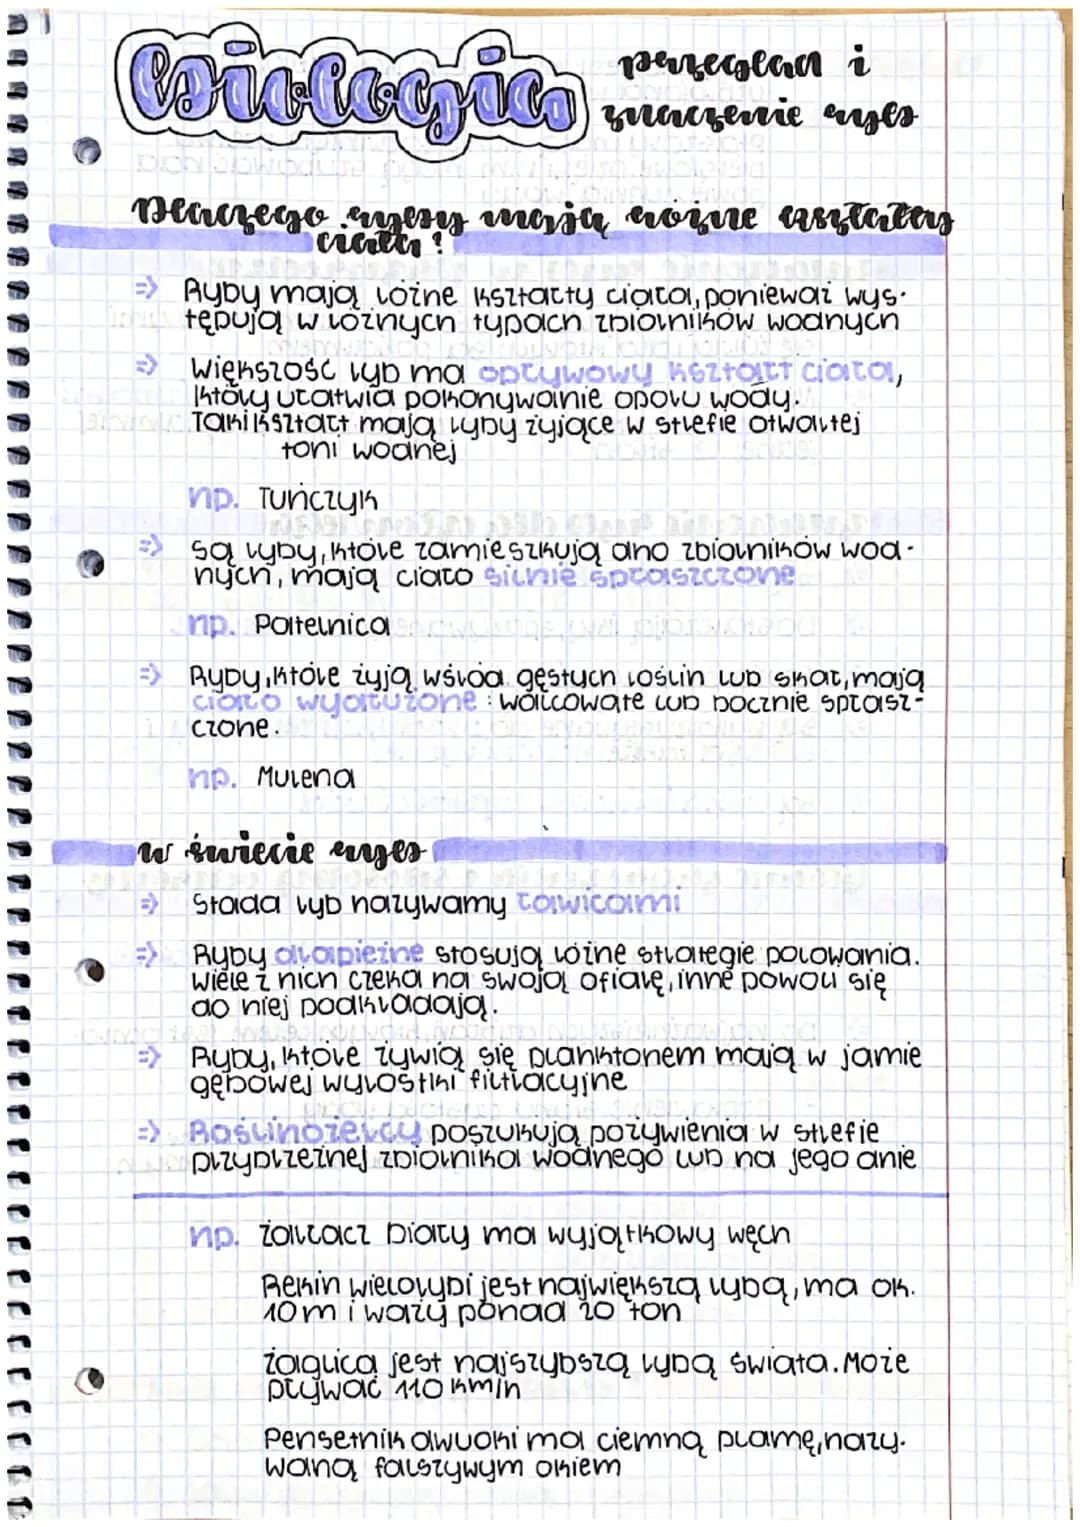 Biologia
przegląd i
znaczenie ryb
Dlaczego ryby mają różne kształty
ciała?
=> Ryby mają różne kształty ciała, ponieważ wys-
tępują w różnych typach zbiorników wodnych
=> Większość ryb ma opływowy kształt ciała,
który ułatwia pokonywanie oporu wody.
Taki kształt mają ryby żyjące w strefie otwartej
toni wodnej
np. Tuńczyk
=> Są ryby, które zamieszkują dno zbiorników wod-
nych, mają ciało silnie spłaszczone
np. Patelnica
=> Ryby, które żyją wśród gęstych roślin lub skał, mają
ciało wydłużone: walcowate lub bocznie spłasz-
czone.
np. Murena
W świecie ryb
=> Stada ryb nazywamy ławicami
=> Ryby drapieżne stosują różne strategie polowania.
Wiele z nich czeka na swoją ofiarę, inne powoli się
do niej podkradają.
=> Ryby, które żywią się planktonem mają w jamie
gębowej wyrostki filtracyjne
=> Roślinożercy poszukują pożywienia w strefie
przybrzeżnej zbiornika wodnego lub na jego dnie
np. Żarłacz biały ma wyjątkowy węch
Rekin wielorybi jest największą rybą, ma ok.
10 m i waży ponad 20 ton
Żaglica jest najszybszą rybą świata. Może
pływać 110 kmin
Pensetnik dwuoki ma ciemną plamę, nazy-
waną fałszywym okiem